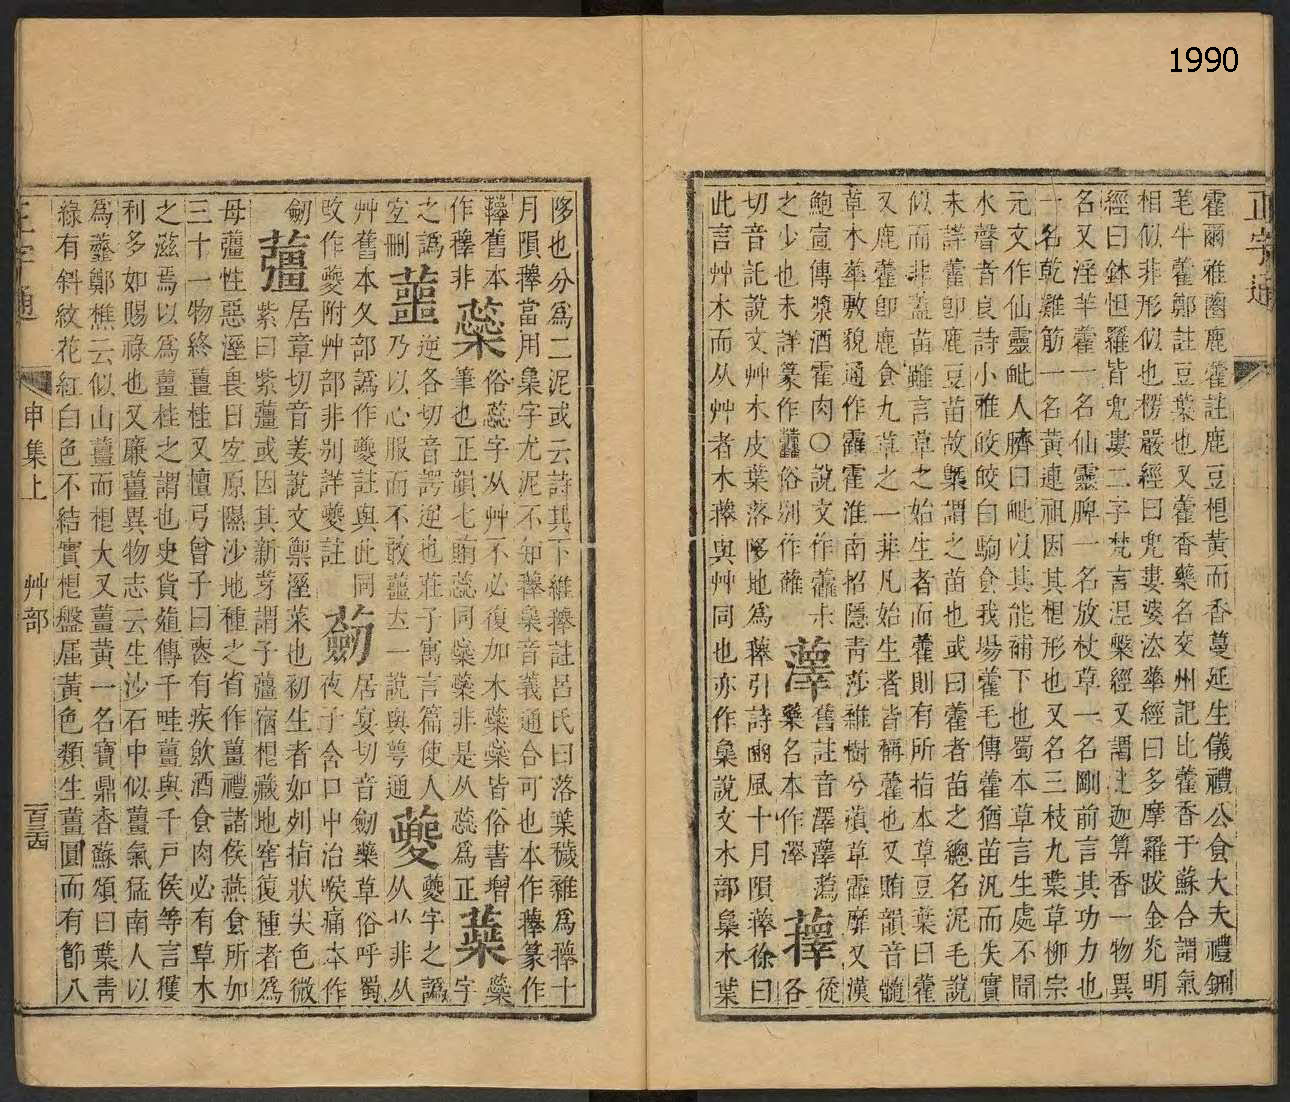 1990
正字通
藿爾雅蔨鹿藿註鹿豆根黃而香蔓延生儀禮公食大夫禮鉶
芼牛藿鄭註豆葉也又藿香藥名交州記比藿香于蘇合謂氣
相似非形似也楞嚴經曰兜婁婆法華經曰多摩羅跋金光明
經曰鉢怛羅皆兜婁二字梵言涅槃經又謂迦算香一物異
名又淫羊藿一名仙靈脾一名放杖草一名剛前言其功力也
一名乾雞筋一名黃連祖因其根形也又名三枝九葉草柳宗
元文作仙靈毗人臍曰毗以其能補下也蜀本草言生處不聞
水聲者良詩小雅皎皎白駒食我場藿毛傳藿猶苗汎而失實
未詳藿卽鹿豆苗故槩謂之苗也或曰藿者苗之總名泥毛說
似而非蓋苗雖言草之始生者而藿則有所指本草豆葉曰藿
又鹿藿卽鹿食九草之一非凡始生者皆稱藿也又賄韻音髓
草木華敷貌通作靃霍淮南招隱靑莎雜樹兮薠草靃靡又漢
鮑宣傳漿酒霍肉〇說文作蘿未從
之少也未詳篆作俗別作蘿 蕵 藥名本作澤 蘀 各
切音託說文艸木皮葉落陊地爲蘀引詩豳風十月隕蘀徐曰
此言艸木而从艸者木蘀與艸同也亦作㯱說文木部㯱木葉
陊也分爲二泥或云詩其下維蘀註呂氏曰落葉穢雜爲蘀十
月隕蘀當用㯱字尤泥不知蘀㯱音義通合可也本作蘀篆作
蘀舊本 蘂 俗蕊字从艸不必復加木蘂橤皆俗書增 蘃 橤
作檡非 筆也正韻七賄蕊同橤蘂非是从蕊爲正 字
之譌 蘁 逆各切音諤逆也莊子寓言篇使人
宜刪 乃以心服而不敢蘁立一說與咢通 从䒑非从
艸舊本夂部譌作夔註與此同 居宴切音劒藥草俗呼蜀
攺作夔附艸部非別詳夔註 夜子含口中治喉痛本作
劒 薑 居章切音姜說文禦溼菜也初生者如列指狀尖色微
紫曰紫薑或因其新芽謂子薑宿根藏地窖復種者爲
母薑性惡溼畏日宜原隰沙地種之省作薑禮諸侯燕食所加
三十一物終薑桂又檀弓曾子曰喪有疾飮酒食肉必有草木
之滋焉以爲薑桂之謂也史貨殖傳千畦薑與千戶侯等言獲
利多如賜祿也又廉薑異物志云生沙石中似薑氣猛南人以
爲虀鄭樵云似山薑而根大又薑黃一名寶鼎香蘇頌曰葉靑
綠有斜紋花紅白色不結實根盤屈黃色類生薑圓而有節八
正字通
申集上
艸部